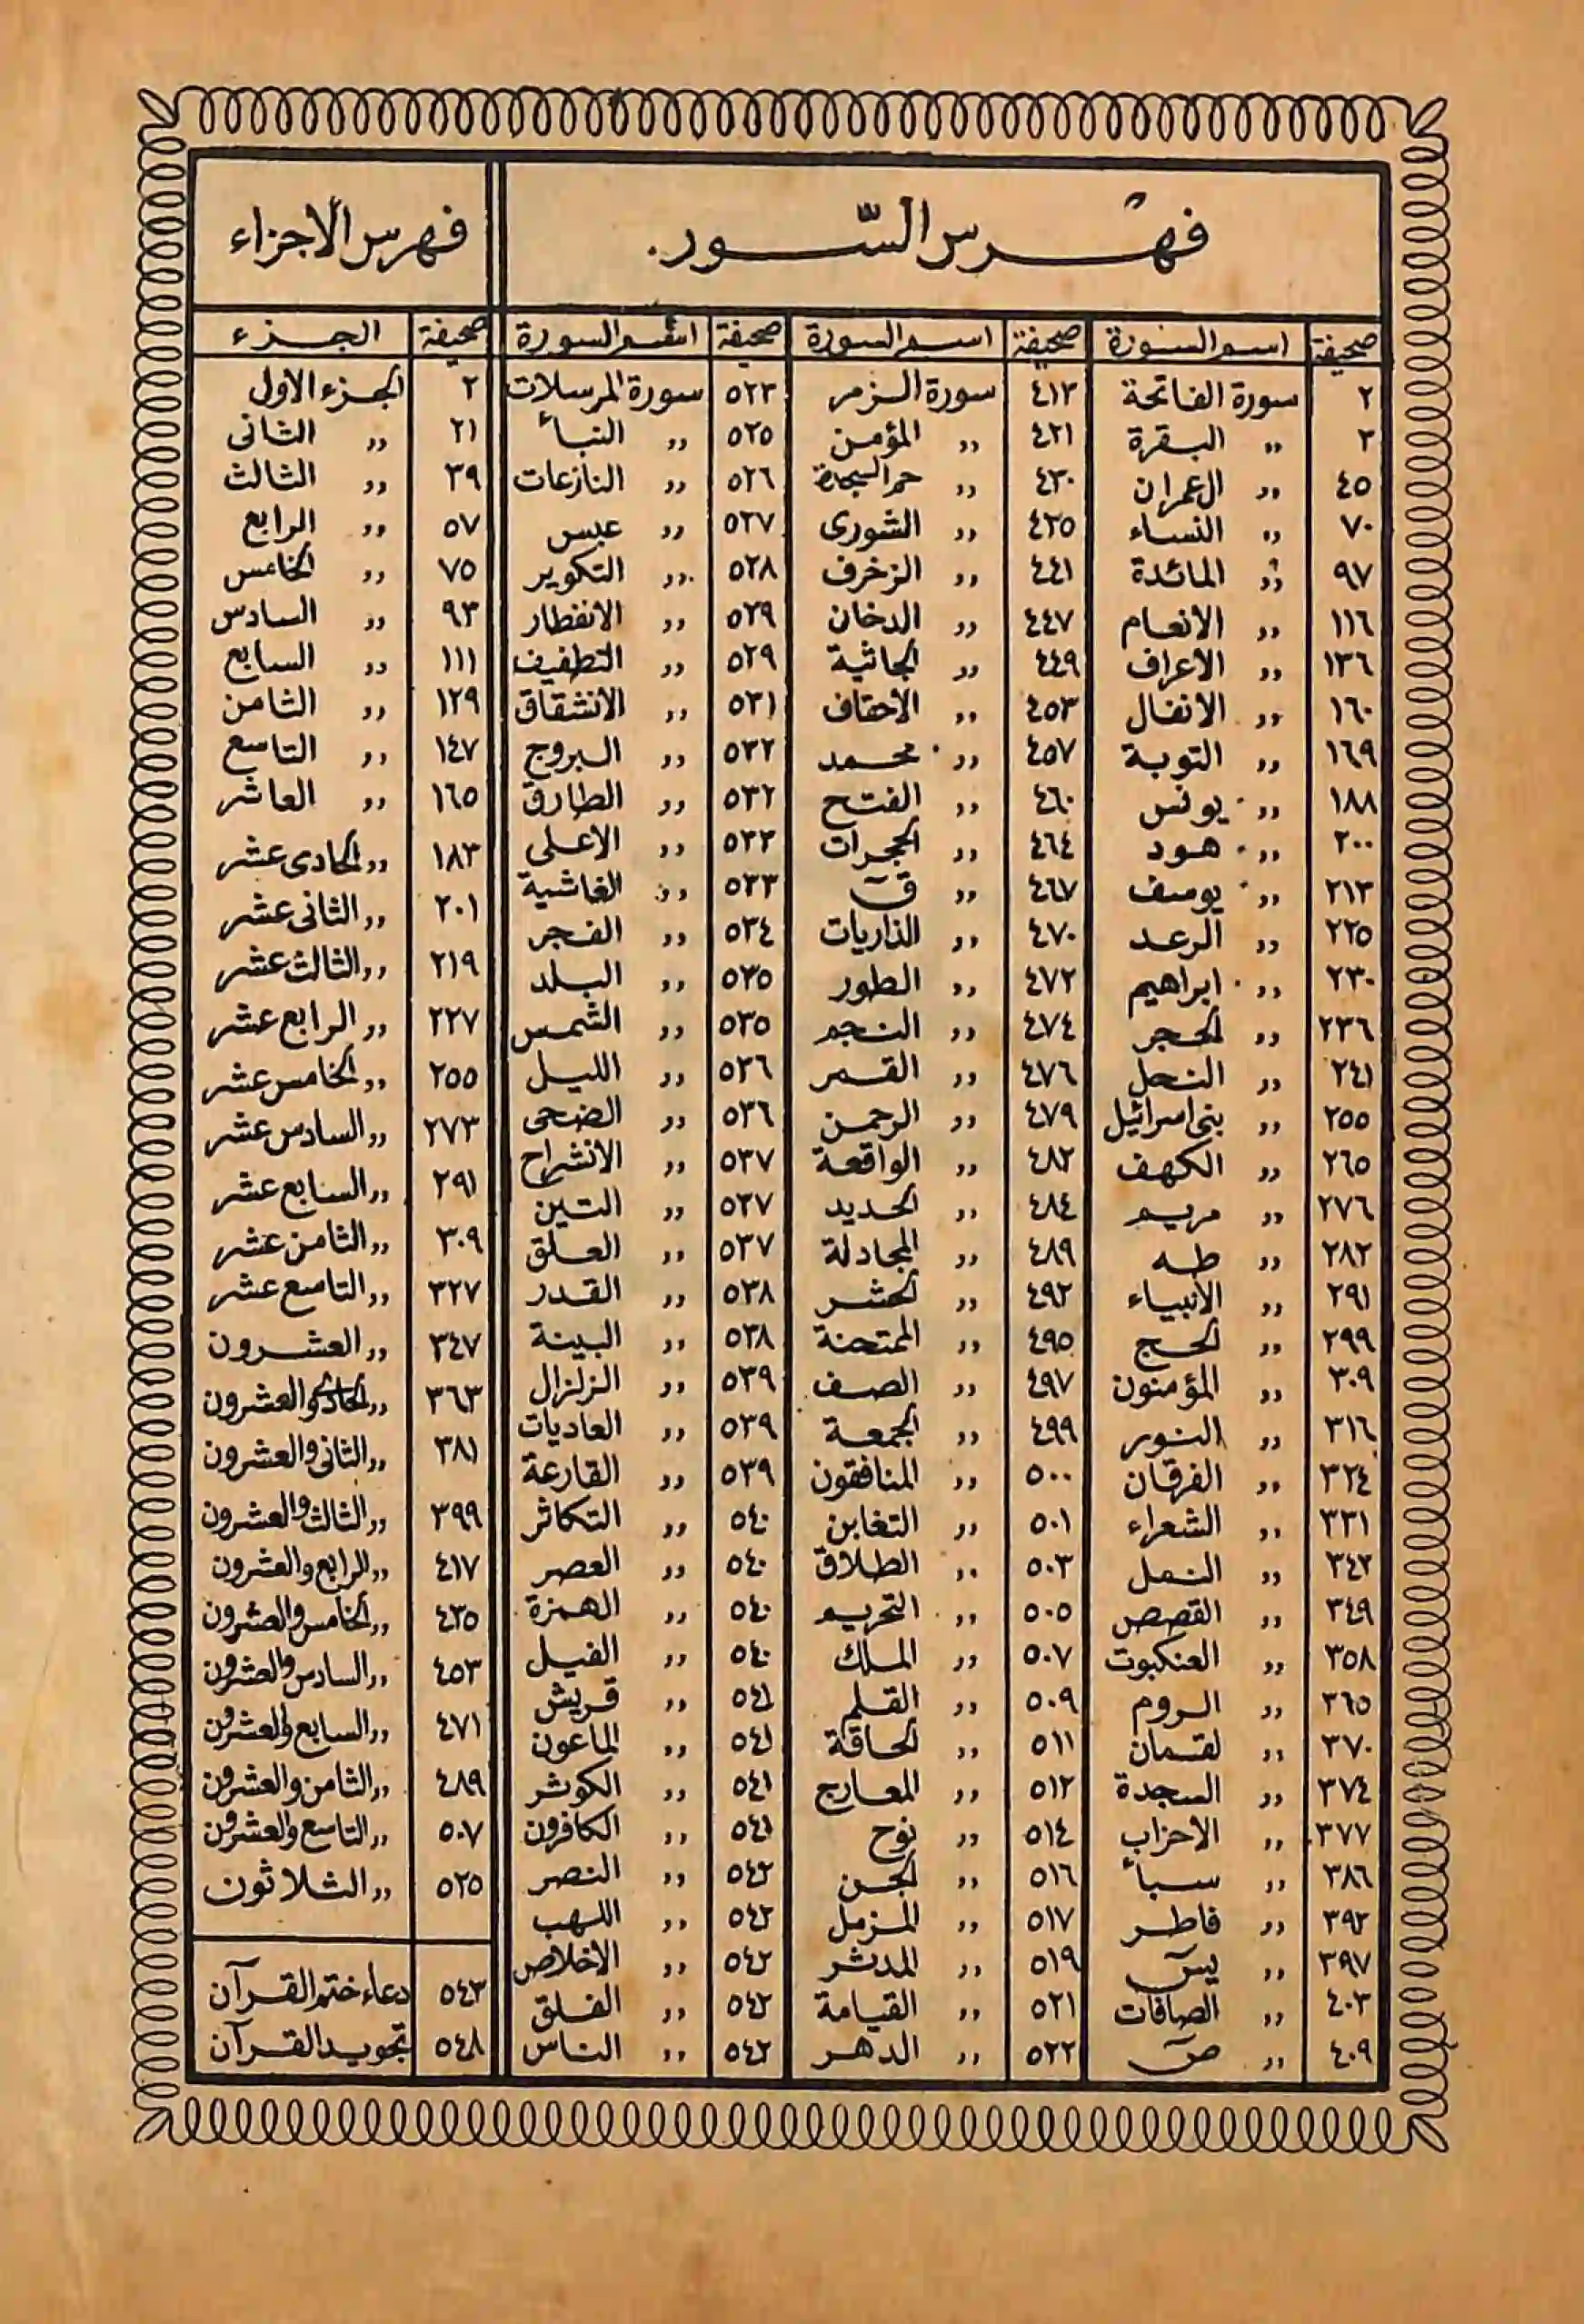 فهرس السّور. فهرس الأجزاء
صحيفة اسم السورة صحيفة اسم السورة صحيفة اسم السورة صحيفة الجزء
٢ سورة الفاتحة ٤١٣ سورة الزمر ٥٢٣ سورة المرسلات ٢ الجزء الاول
٣ ,, البقرة ٤٢١ ,, المؤمن ٥٢٥ ,, النبأ ٢١ ,, الثانى
٤٥ ,, ال عمران ٤٣٠ ,, حم السجدة ٥٢٦ ,, النازعات ٣٩ ,, الثالث
٧٠ ,, النساء ٤٣٥ ,, الشورى ٥٢٧ ,, عبس ٥٧ ,, الرابع
٩٧ ,, المائدة ٤٤١ ,, الزخرف ٥٢٨ ,, التكوير ٧٥ ,, الخامس
١١٦ ,, الانعام ٤٤٧ ,, الدخان ٥٢٩ ,, الانفطار ٩٣ ,, السادس
١٣٦ ,, الأعراف ٤٤٩ ,, الجاثية ٥٢٩ ,, التطفيف ١١١ ,, السابع
١٦٠ ,, الانفال ٤٥٣ ,, الاحقاف ٥٣١ ,, الانشقاق ١٢٩ ,, الثامن
١٦٩ ,, التوبة ٤٥٧ ,, محمد ٥٣٢ ,, البروج ١٤٧ ,, التاسع
١٨٨ ,, يونس ٤٦٠ ,, الفتح ٥٣٢ ,, الطارق ١٦٥ ,, العاشر
٢٠٠ ,, هود ٤٦٤ ,, الحجرات ٥٣٣ ,, الاعلى ١٨٣ ,, الحادى عشر
٢١٣ ,, يوسف ٤٦٧ ,, قۤ ٥٣٣ ,, الغاشية ٢٠١ ,, الثانى عشر
٢٢٥ ,, الرعد ٤٧٠ ,, الذاريات ٥٣٤ ,, الفجر ٢١٩ ,, الثالث عشر
٢٣٠ ,, ابراهيم ٤٧٢ ,, الطور ٥٣٥ ,, البلد ٢٣٧ ,, الرابع عشر
٢٣٦ ,, الحجر ٤٧٤ ,, النجم ٥٣٥ ,, الشمس ٢٥٥ ,, الخامس عشر
٢٤١ ,, النحل ٤٧٦ ,, القمر ٥٣٦ ,, الليل ٢٧٣ ,, السادس عشر
٢٥٥ ,, بنى اسرائيل ٤٧٩ ,, الرحمن ٥٣٦ ,, الضحى ٢٩١ ,, السابع عشر
٢٦٥ ,, الكهف ٤٨٢ ,, الواقعة ٥٣٧ ,, الانشراح ٣٠٩ ,, الثامن عشر
٢٧٦ ,, مريم ٤٨٤ ,, الحديد ٥٣٧ ,, التين ٣٢٧ ,, التاسع عشر
٢٨٢ ,, طه ٤٨٩ ,, المجادلة ٥٣٧ ,, العلق ٣٤٧ ,, العشرون
٢٩١ ,, الأنبياء ٤٩٢ ,, الحشر ٥٣٨ ,, القدر ٣٦٣ ,, الحادى والعشرون
٢٩٩ ,, الحج ٤٩٥ ,, الممتحنة ٥٣٨ ,, البينة ٣٨١ ,, الثانى والعشرون
٣٠٩ ,, المؤمنون ٤٩٧ ,, الصف ٥٣٩ ,, الزلزال ٣٩٩ ,, الثالث والعشرون
٣١٦ ,, النور ٤٩٩ ,, الجمعة ٥٣٩ ,, العاديات ٤١٧ ,, الرابع والعشرون
٣٢٤ ,, الفرقان ٥٠٠ ,, المنافقون ٥٣٩ ,, القارعة ٤٣٥ ,, الخامس والعشرون
٣٣١ ,, الشعراء ٥٠١ ,, التغابن ٥٤٠ ,, التكاثر ٤٥٣ ,, السادس والعشرون
٣٤٢ ,, النمل ٥٠٣ ,, الطلاق ٥٤٠ ,, العصر ٤٧١ ,, السابع والعشرون
٣٤٩ ,, القصص ٥٠٥ ,, التحريم ٥٤٠ ,, الهمزة ٤٨٩ ,, الثامن والعشرون
٣٥٨ ,, العنكبوت ٥٠٧ ,, الملك ٥٤٠ ,, الفيل ٥٠٧ ,, التاسع والعشرون
٣٦٥ ,, الروم ٥٠٩ ,, القلم ٥٤١ ,, قريش ٥٢٥ ,, الثلاثون
٣٧٠ ,, لقمان ٥١١ ,, الحاقة ٥٤١ ,, الماعون
٣٧٤ ,, السجدة ٥١٢ ,, المعارج ٥٤١ ,, الكوثر
٣٧٧ ,, الاحزاب ٥١٤ ,, نوح ٥٤١ ,, الكافرون
٣٨٦ ,, سبأ ٥١٦ ,, الجن ٥٤٢ ,, النصر
٣٩٢ ,, فاطر ٥١٧ ,, المزمل ٥٤٢ ,, اللهب
٣٩٧ ,, يسۤ ٥١٩ ,, المدثر ٥٤٢ ,, الاخلاص ٥٤٣ دعاء ختم القرآن
٤٠٣ ,, الصافات ٥٢١ ,, القيامة ٥٤٢ ,, الفلق ٥٤٨ تجويد القرآن
٤٠٩ ,, صۤ ٥٢٢ ,, الدهر ٥٤٢ ,, الناس